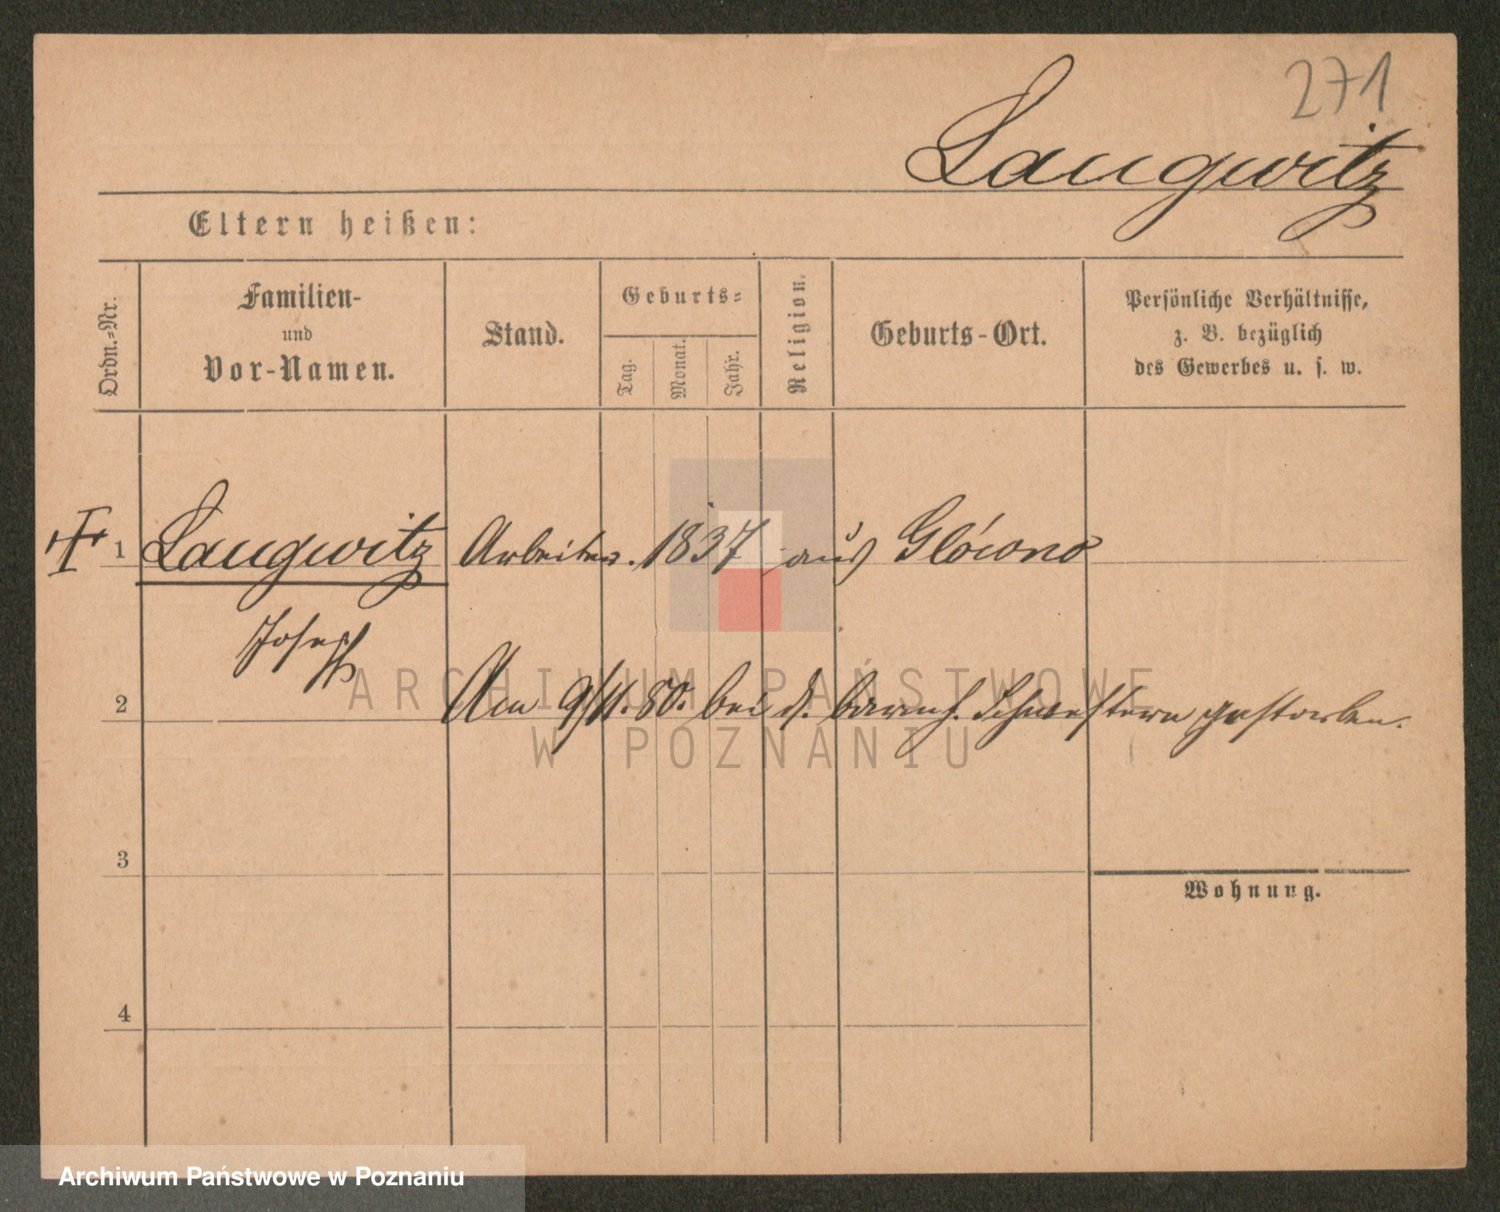 271
Langwitz
Eltern heißen:
Ordn.-Nr.
Familien-
und
Vor-Namen.
Stand.
Geburts-
Tag.
Monat.
Jahr.
Religion.
Geburts-Ort.
Persönliche Verhältnisse,
z. B. bezüglich
des Gewerbes u. s. w.
1 Langwitz Arbeiter. 1837 aus
Joseph
2 Am 9/11. 80. bei d. barmh. Schwestern gestorben.
3
Wohnung.
4
ARCHIWUM PAŃSTWOWE
W POZNANIU
Archiwum Państwowe w Poznaniu